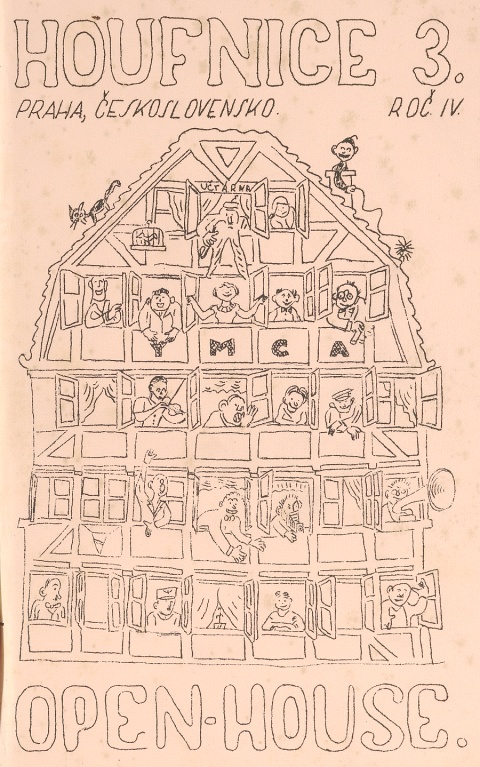 HOUFNICE 3.
PRAHA, ČESKOSLOVENSKO. ROČ. IV.
UČTÁRNA
YMCA
OPEN-HOUSE.